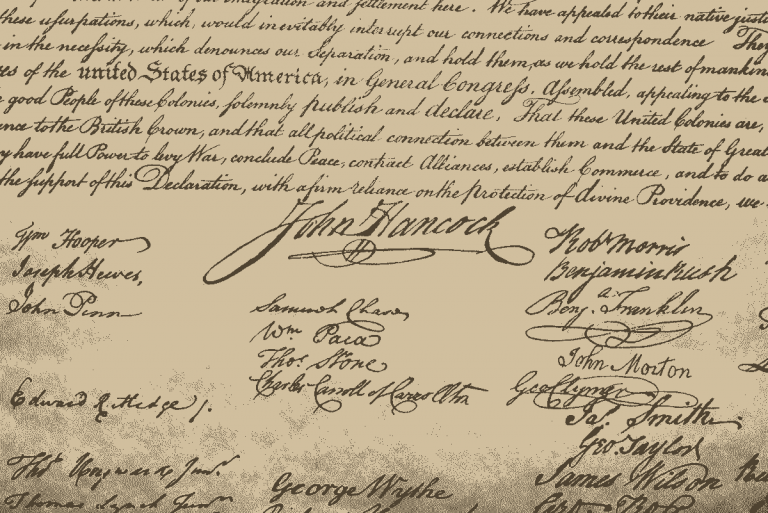 migration and settlement here. We have appealed to their native justi
these usurpations, which, would inevitably interrupt our connections and correspondence They
in the necessity, which denounces our Separation, and hold them, as we hold the rest of mankin
es of the united States of America, in General Congress, Assembled, appealing to the
good People of these Colonies, solemnly publish and declare, That these United Colonies are,
ence to the British Crown, and that all political connection between them and the State of Great
y have full Power to levy War, conclude Peace, contract Alliances, establish Commerce, and to do a
the support of this Declaration, with a firm reliance on the Protection of divine Providence, we
John Hancock
Wm Hooper
Joseph Hewes,
John Penn
Edward Rutledge /.
Thos Heyward Junr.
Thomas Lynch Junr
Samuel Chase
Wm. Paca
Thos. Stone
Charles Carroll of Carrollton
George Wythe
Robt Morris
Benjamin Rush
Benj. Franklin
John Morton
Geo Clymer
Jas. Smith.
Geo. Taylor
James Wilson
Geo. Ross